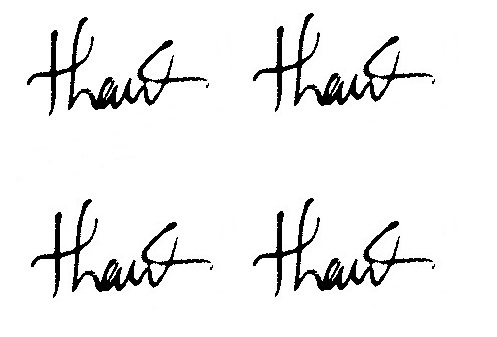 thant thant
thant thant